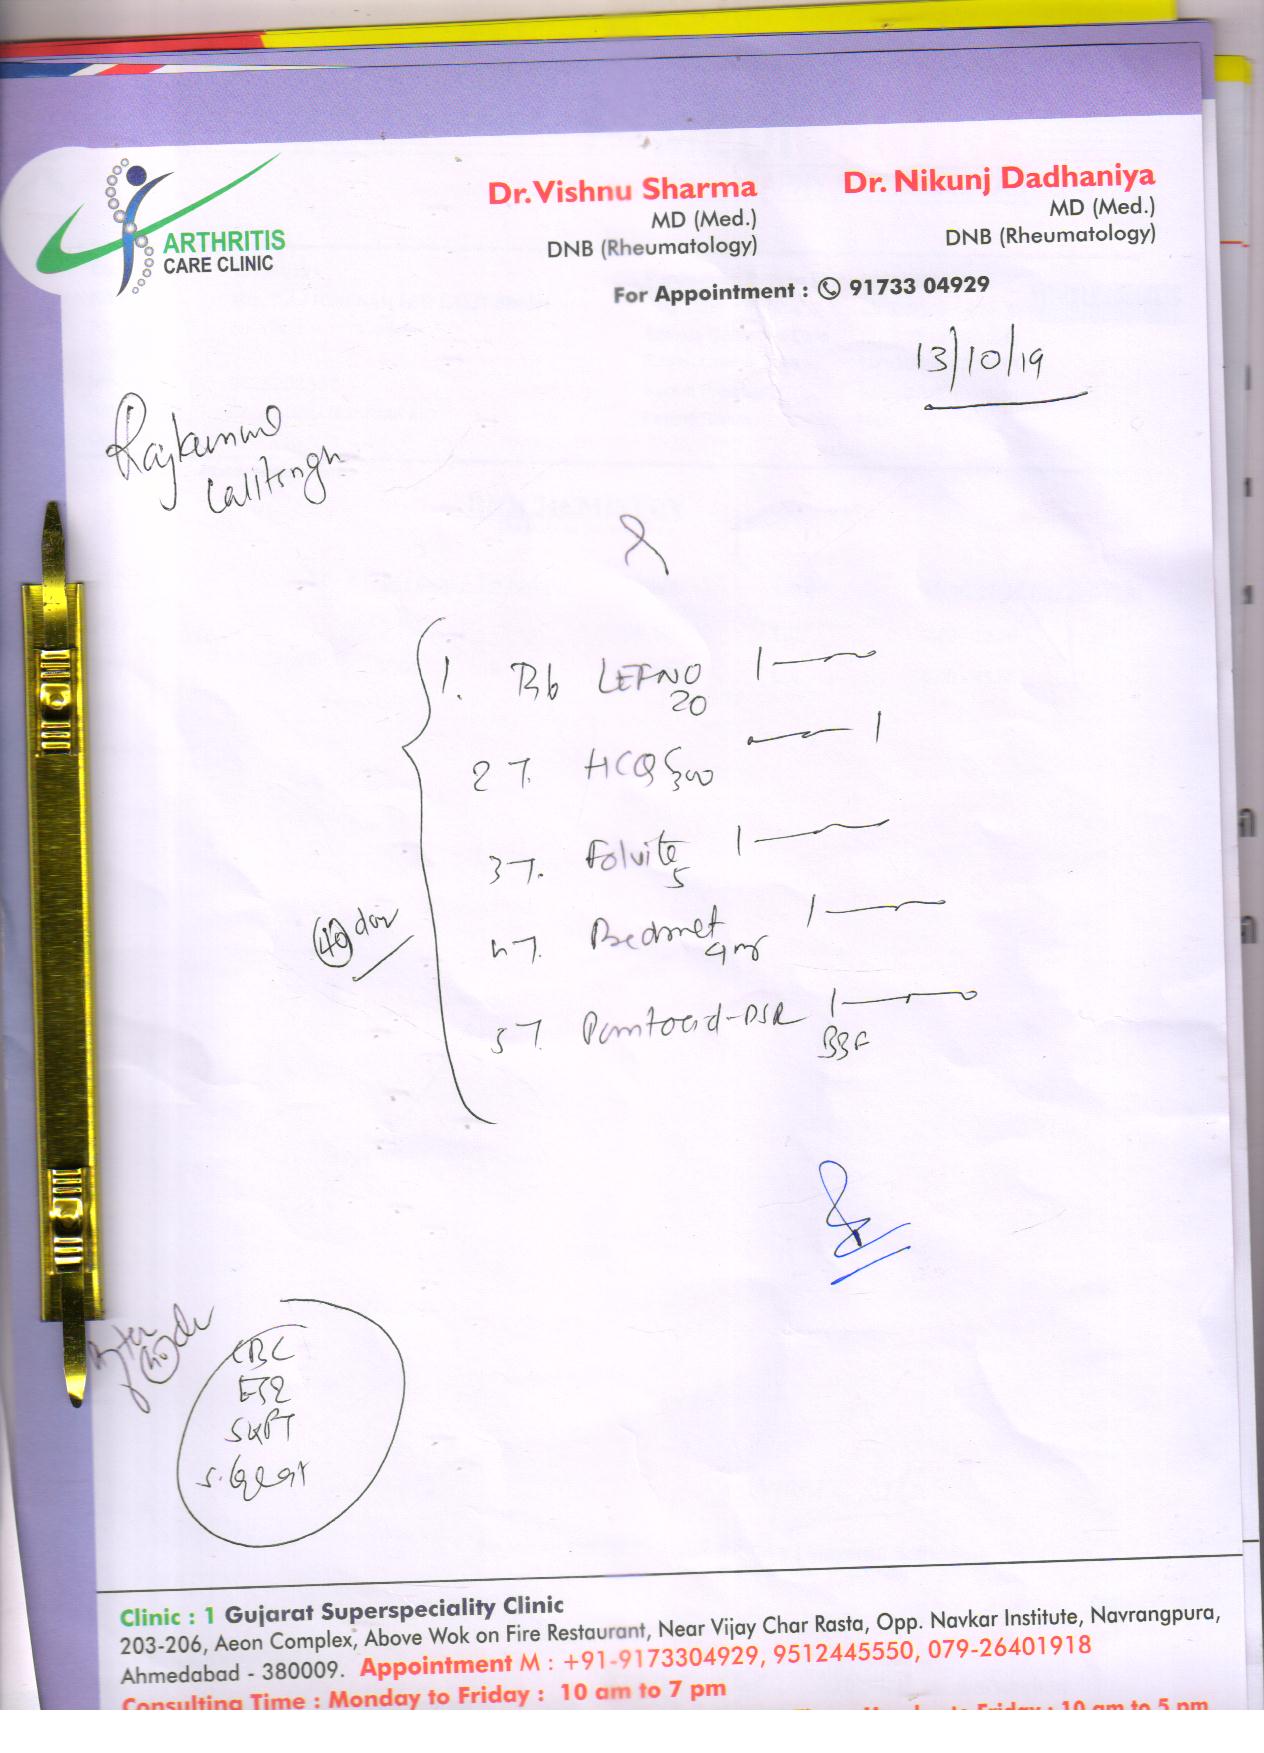 ARTHRITIS
CARE CLINIC
Dr. Vishnu Sharma
MD (Med.)
DNB (Rheumatology)
Dr. Nikunj Dadhaniya
MD (Med.)
DNB (Rheumatology)
For Appointment : 91733 04929
13/10/19
Rajkumar
Lalitsingh
1. Tab LEFNO 20 1——
2 T. HCQS 300 —— 1
3 T. Folvite 5 1——
4 T. Bedmet 4mg 1——
5 T. Pantocid-DSR 1——
BBF
40 day
After 40 day
CBC
ESR
SGPT
S. Creat
Clinic : 1 Gujarat Superspeciality Clinic
203-206, Aeon Complex, Above Wok on Fire Restaurant, Near Vijay Char Rasta, Opp. Navkar Institute, Navrangpura,
Ahmedabad - 380009. Appointment M : +91-9173304929, 9512445550, 079-26401918
Consulting Time : Monday to Friday : 10 am to 7 pm
to Friday : 10 am to 5 pm